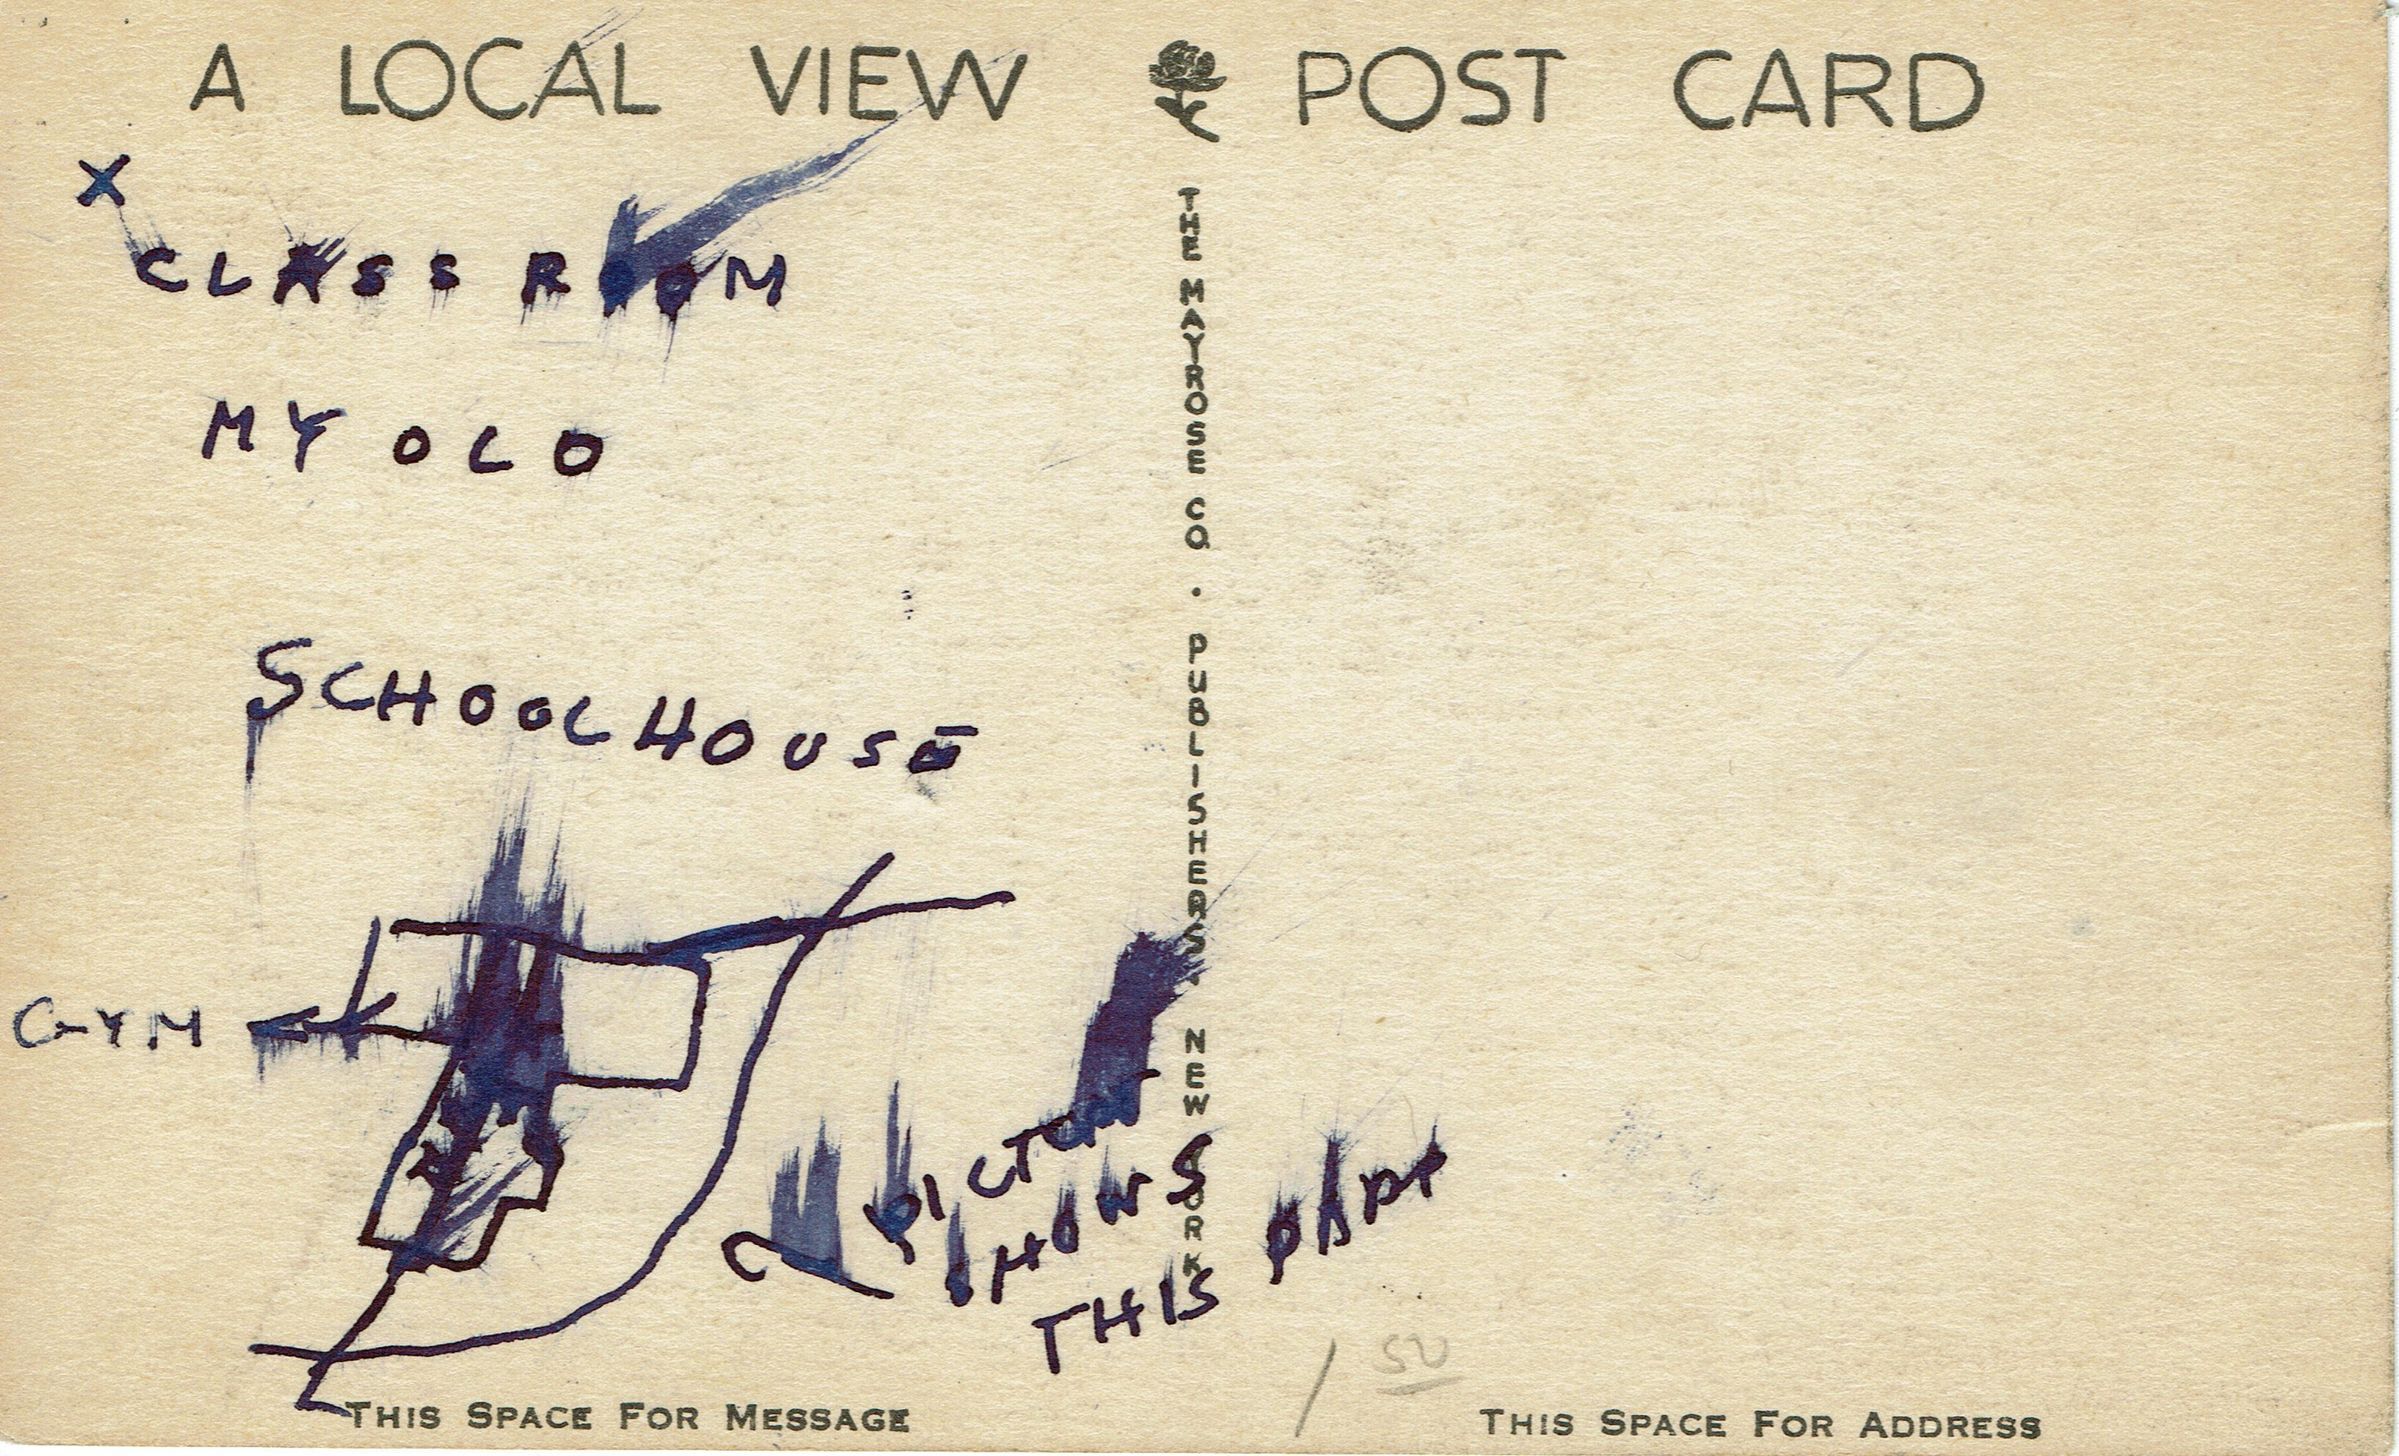 A LOCAL VIEW POST CARD
X
CLASS ROOM
MY OLD
SCHOOL HOUSE
GYM
PICTURE
SHOWS
THIS PART
THE MAYROSE CO. · PUBLISHERS · NEW YORK
1 50
THIS SPACE FOR MESSAGE
THIS SPACE FOR ADDRESS